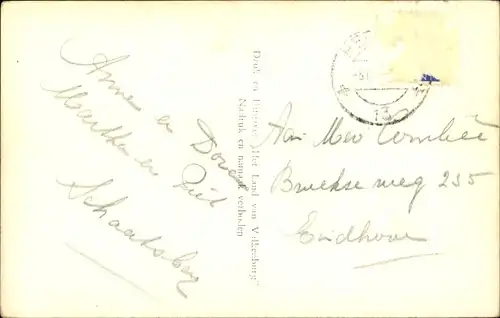 Anne en Dorel
Maarthe en Piet
Schaatsberg
Druk en Uitgave „Het Land van Valkenburg"
Nadruk en namaak verboden
13
Aan Mev
Bruekse weg 255
Eindhoven